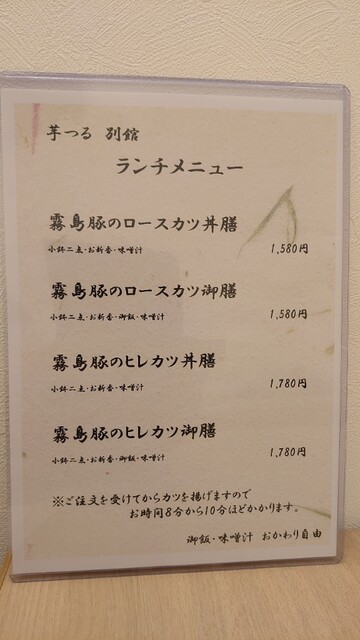 芋つる 別館
ランチメニュー
霧島豚のロースカツ丼膳
小鉢二点・お新香・味噌汁 1,580円
霧島豚のロースカツ御膳
小鉢二点・お新香・御飯・味噌汁 1,580円
霧島豚のヒレカツ丼膳
小鉢二点・お新香・味噌汁 1,780円
霧島豚のヒレカツ御膳
小鉢二点・お新香・御飯・味噌汁 1,780円
※ご注文を受けてからカツを揚げますので
お時間8分から10分ほどかかります。
御飯・味噌汁 おかわり自由